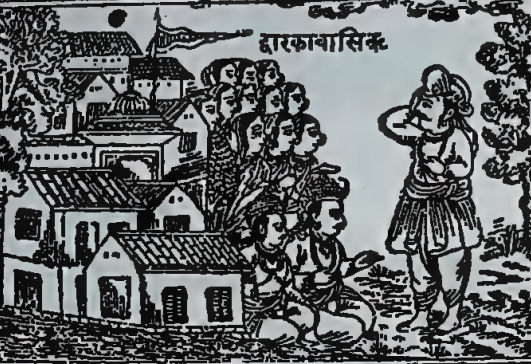 द्वारकावासिक